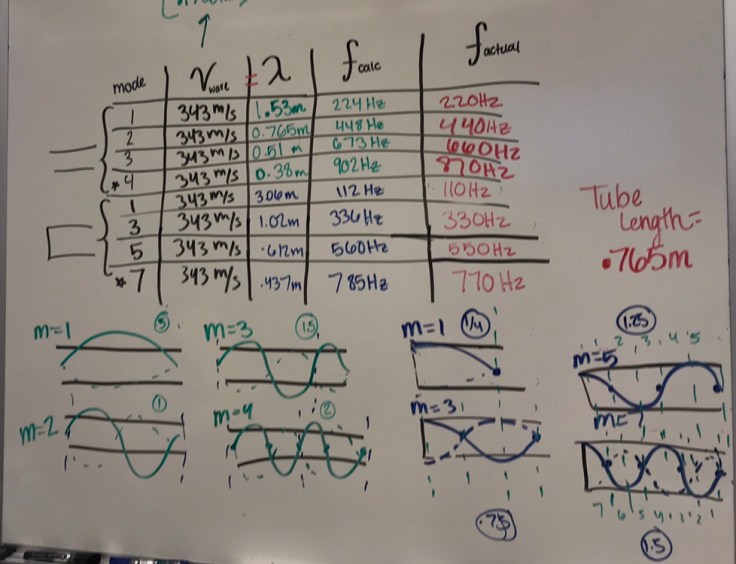 mode Vwave = λ fcalc factual
1 343 m/s 1.53m 224 Hz 220Hz
2 343 m/s 0.765m 448 Hz 440Hz
3 343 m/s 0.51 m 673 Hz 660Hz
*4 343 m/s 0.38m 902Hz 870Hz
1 343 m/s 306m 112 Hz 110Hz
3 343 m/s 1.02m 336Hz 330Hz
5 343 m/s .612m 560Hz 550Hz
*7 343 m/s .437m 785Hz 770Hz
Tube
Length=
.765m
m=1
m=3
m=1 1/4
1.25
1 2 3 4 5
m=5
m=2 1
m=4 2
m=3
.75
7 6 5 4 3 2 1
1.5